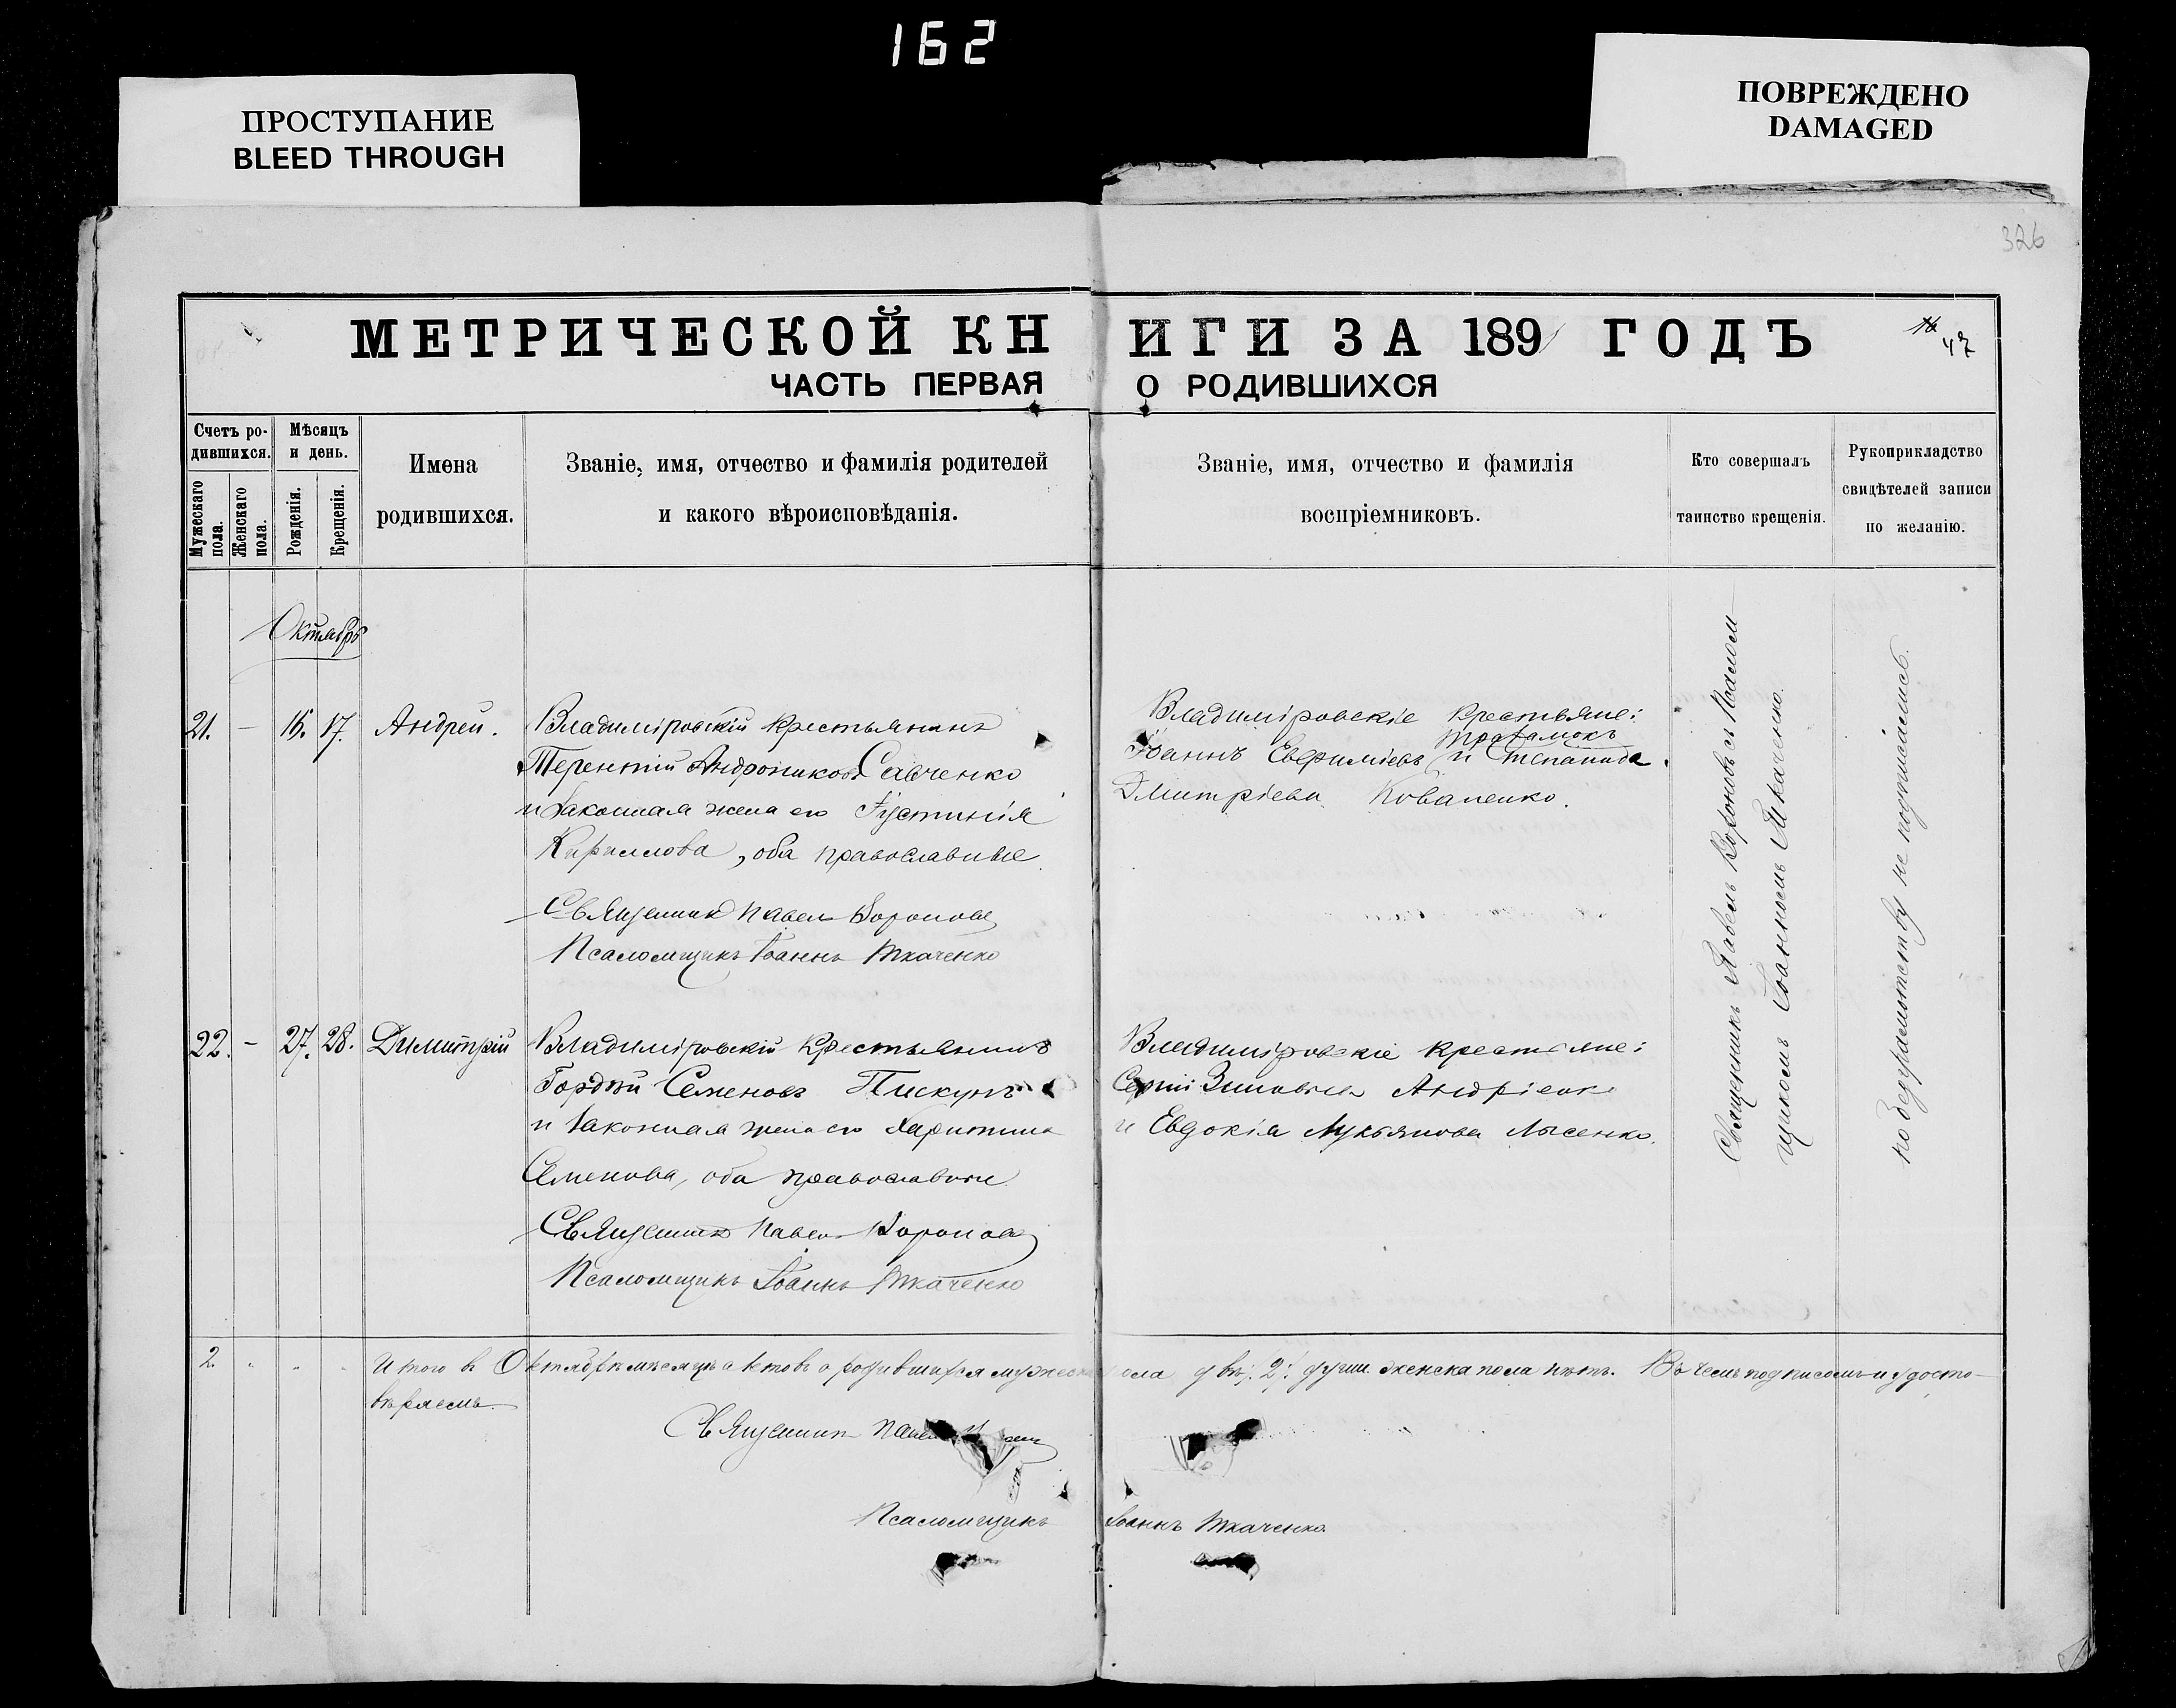 162
ПРОСТУПАНИЕ
BLEED THROUGH
ПОВРЕЖДЕНО
DAMAGED
326
МЕТРИЧЕСКОЙ КНИГИ ЗА 1891 ГОДЪ
47
ЧАСТЬ ПЕРВАЯ О РОДИВШИХСЯ
Счетъ ро-
дившихся.
Мужескаго
пола.
Женскаго
пола.
Мѣсяцъ
и день.
Рожденія.
Крещенія.
Имена
родившихся.
Званіе, имя, отчество и фамилія родителей
и какого вѣроисповѣданія.
Званіе, имя, отчество и фамилія
воспріемниковъ.
Кто совершалъ
таинство крещенія.
Рукоприкладство
свидѣтелей записи
по желанію.
Октябрь
21. – 15. 17. Андрей.
Владиміровскій крестьянинъ
Терентій Андрониковъ Савченко
и законная жена его Іустинія
Кириллова, оба православные
Священникъ Павелъ Вороновъ
Псаломщикъ Іоаннъ Ткаченко
Владиміровскіе крестьяне:
Іоаннъ Евфиміевъ и Степанида
Дмитріева Коваленко.
22. – 27. 28. Димитрій
Владиміровскій крестьянинъ
Гордѣй Семеновъ Пискунъ
и законная жена его Харитина
Семенова, оба православные
Священникъ Павелъ Вороновъ
Псаломщикъ Іоаннъ Ткаченко
Владиміровскіе крестьяне:
Сергій Зиновьевъ Андріенко
и Евдокія Лукьянова Лысенко.
Священникъ Павелъ Вороновъ съ Псалом
щикомъ Іоанномъ Ткаченко.
по безграмотству не подписались.
2. Итого въ Октябрѣ мѣсяцѣ актовъ о родившихся мужеска пола двѣ "2" души женска пола нѣтъ. Въ чемъ подписомъ и удосто-
вѣряемъ.
Священникъ Павелъ
Псаломщикъ Іоаннъ Ткаченко